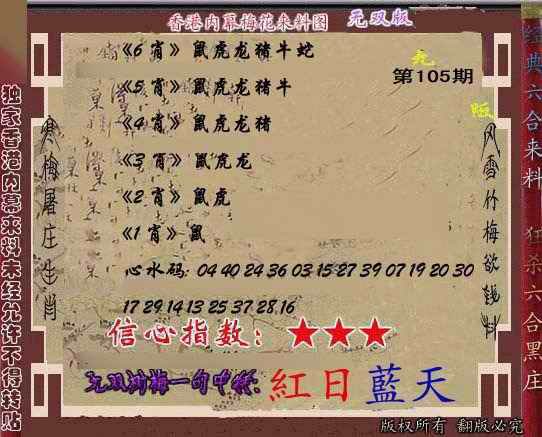 香港内幕梅花来料图 无双版
《6 肖》 鼠虎龙猪牛蛇
九
第105期
《5 肖》 鼠虎龙猪牛
《4 肖》 鼠虎龙猪
《3 肖》 鼠虎龙
《2 肖》 鼠虎
《1 肖》 鼠
心水码: 04 40 24 36 03 15 27 39 07 19 20 30
17 29 14 13 25 37 28.16
信心指数：★★★
一句中特:
紅日藍天
版权所有 翻版必究
独家香港内幕来料未经允许不得转贴
寒梅屠庄生肖
风雪竹梅欲钱料
经典六合来料 狂杀六合黑庄